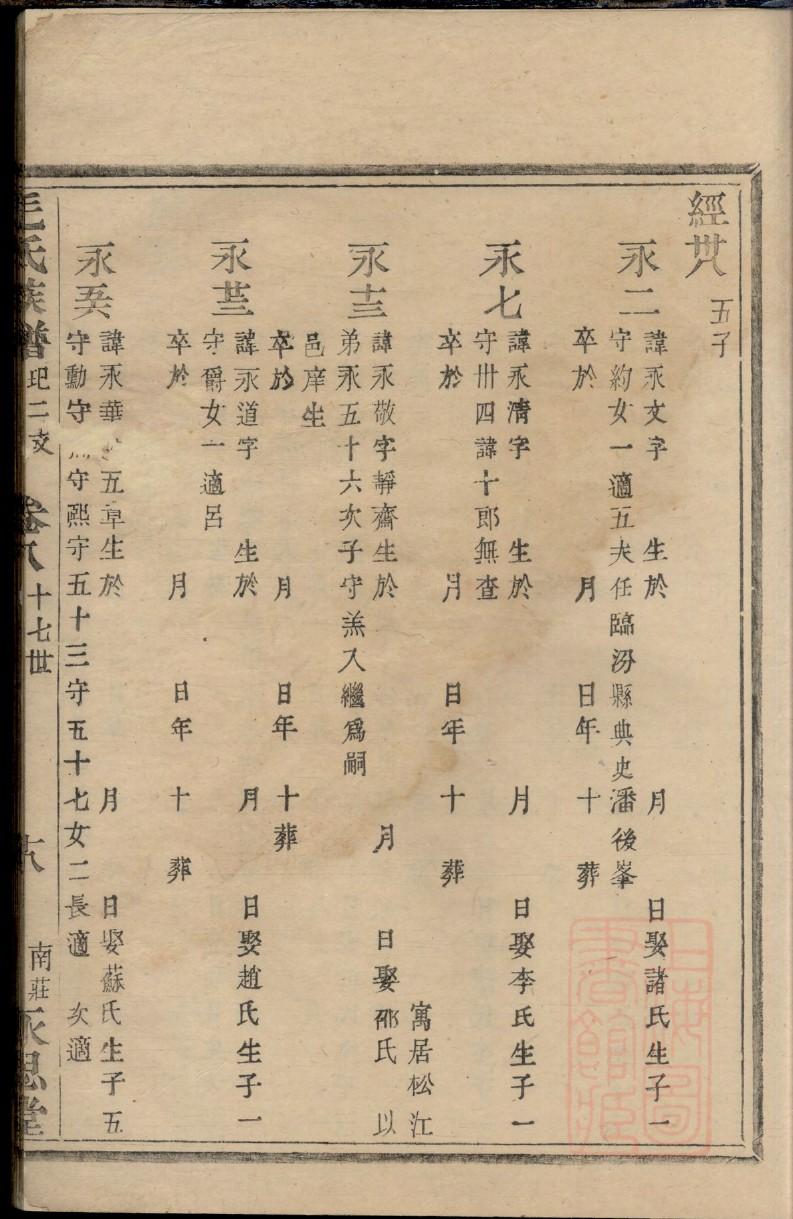 經卅八 五子
永二
諱永文字 生於 月 日娶諸氏生子一
守約女一適五夫任臨汾縣典史潘後峯
卒於 月 日年 十 葬
永七
諱永淸字 生於 月 日娶李氏生子一
守卅四諱十郎無查
卒於 月 日年 十 葬
永十三
寓居松江
諱永敬字靜齋生於 月 日娶邵氏 以
弟永五十六次子守羔入繼爲嗣
邑庠生
卒於 月 日年 十葬
永廿三
諱永道字 生於 月 日娶趙氏生子一
守爵女一適呂
卒於 月 日年 十 葬
永五六
諱永華 五草生於 月 日娶蘇氏生子五
守勳守 守熙守五十三守五十七女二長適 次適
毛氏族譜 玘二支 卷八 十七世 十八 南莊永思堂
上海圖書館藏